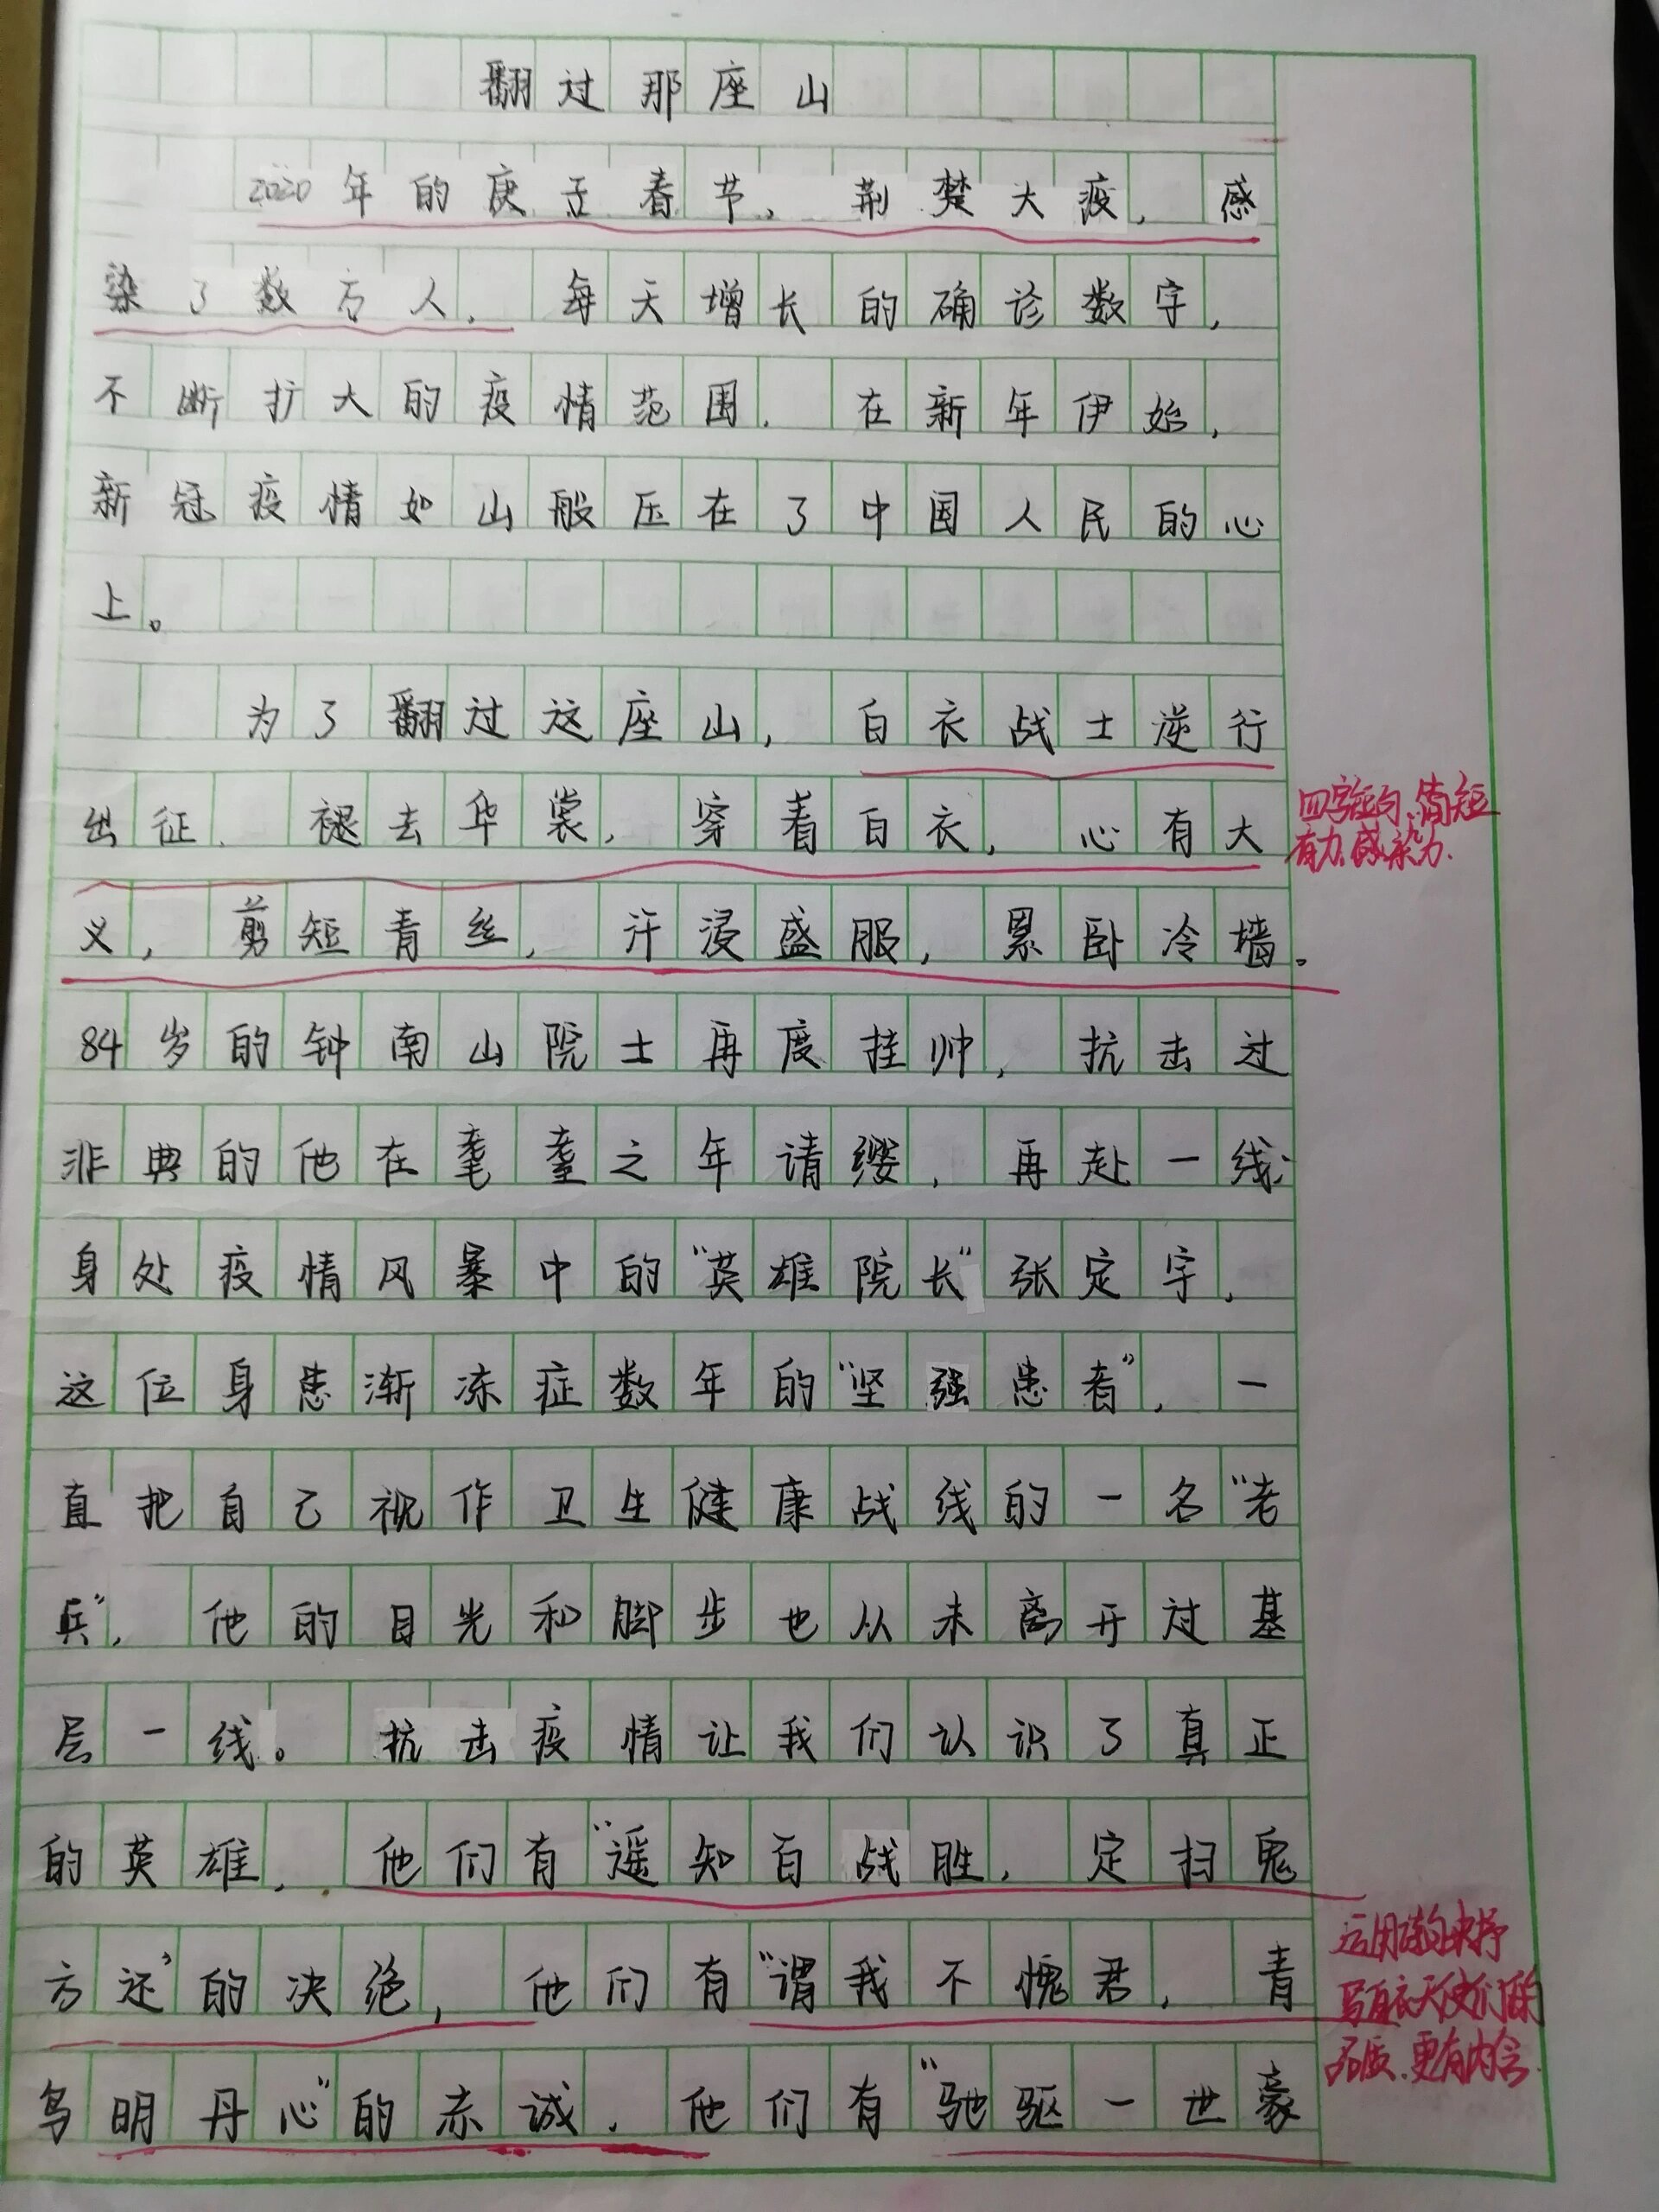 翻过那座山
2020年的庚子春节，荆楚大疫，感
染了数万人，每天增长的确诊数字，
不断扩大的疫情范围，在新年伊始，
新冠疫情如山般压在了中国人民的心
上。
为了翻过这座山，白衣战士逆行
出征，褪去华裳，穿着白衣，心有大
四字短句，简短
有力，感染力.
义，剪短青丝，汗浸盛服，累卧冷墙。
84岁的钟南山院士再度挂帅，抗击过
非典的他在耄耋之年请缨，再赴一线；
身处疫情风暴中的"英雄院长"张定宇，
这位身患渐冻症数年的"坚强患者"，一
直把自己视作卫生健康战线的一名"老
兵"，他的目光和脚步也从未离开过基
层一线。抗击疫情让我们认识了真正
的英雄，他们有"遥知百战胜，定扫鬼
方还"的决绝，他们有"谓我不愧君，青
鸟明丹心"的赤诚，他们有"驰驱一世豪
运用诗句来抒
写白衣天使们的
品质，更有内含.